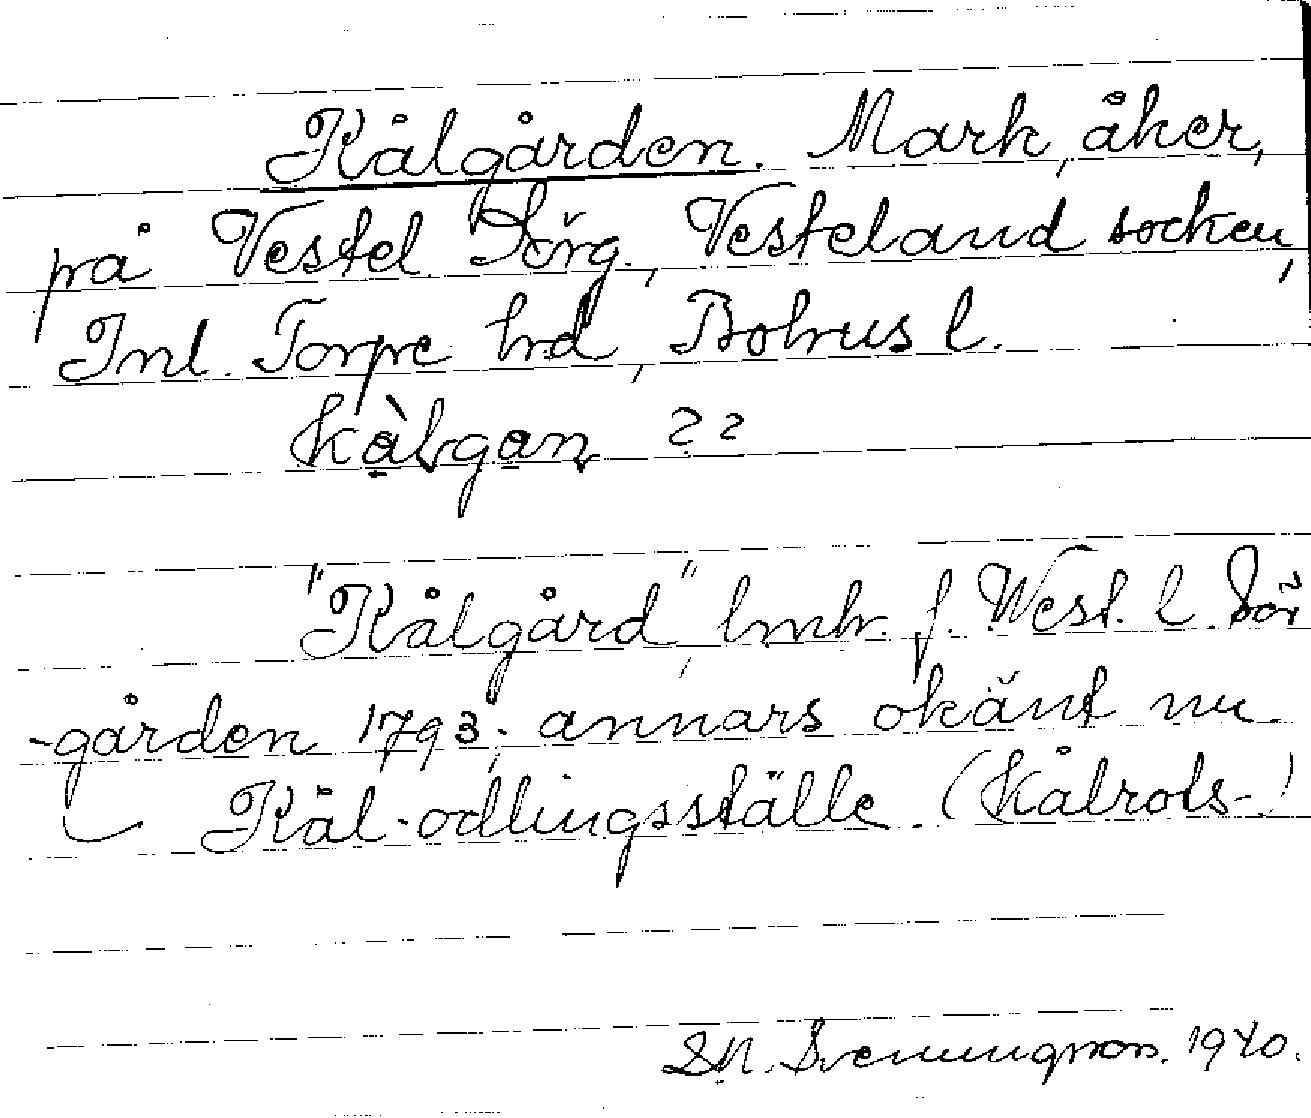 Kålgården. Mark, åker,
på Vestel. Sörg., Vesteland socken,
Inl. Torpe hd, Bohus l.
kålgan ??
"Kålgård", lmh. f. West. l. Sör
-gården 1793; annars okänt nu
Kål-odlingsställe. (Kålrots-)
Svenungsson. 1940.